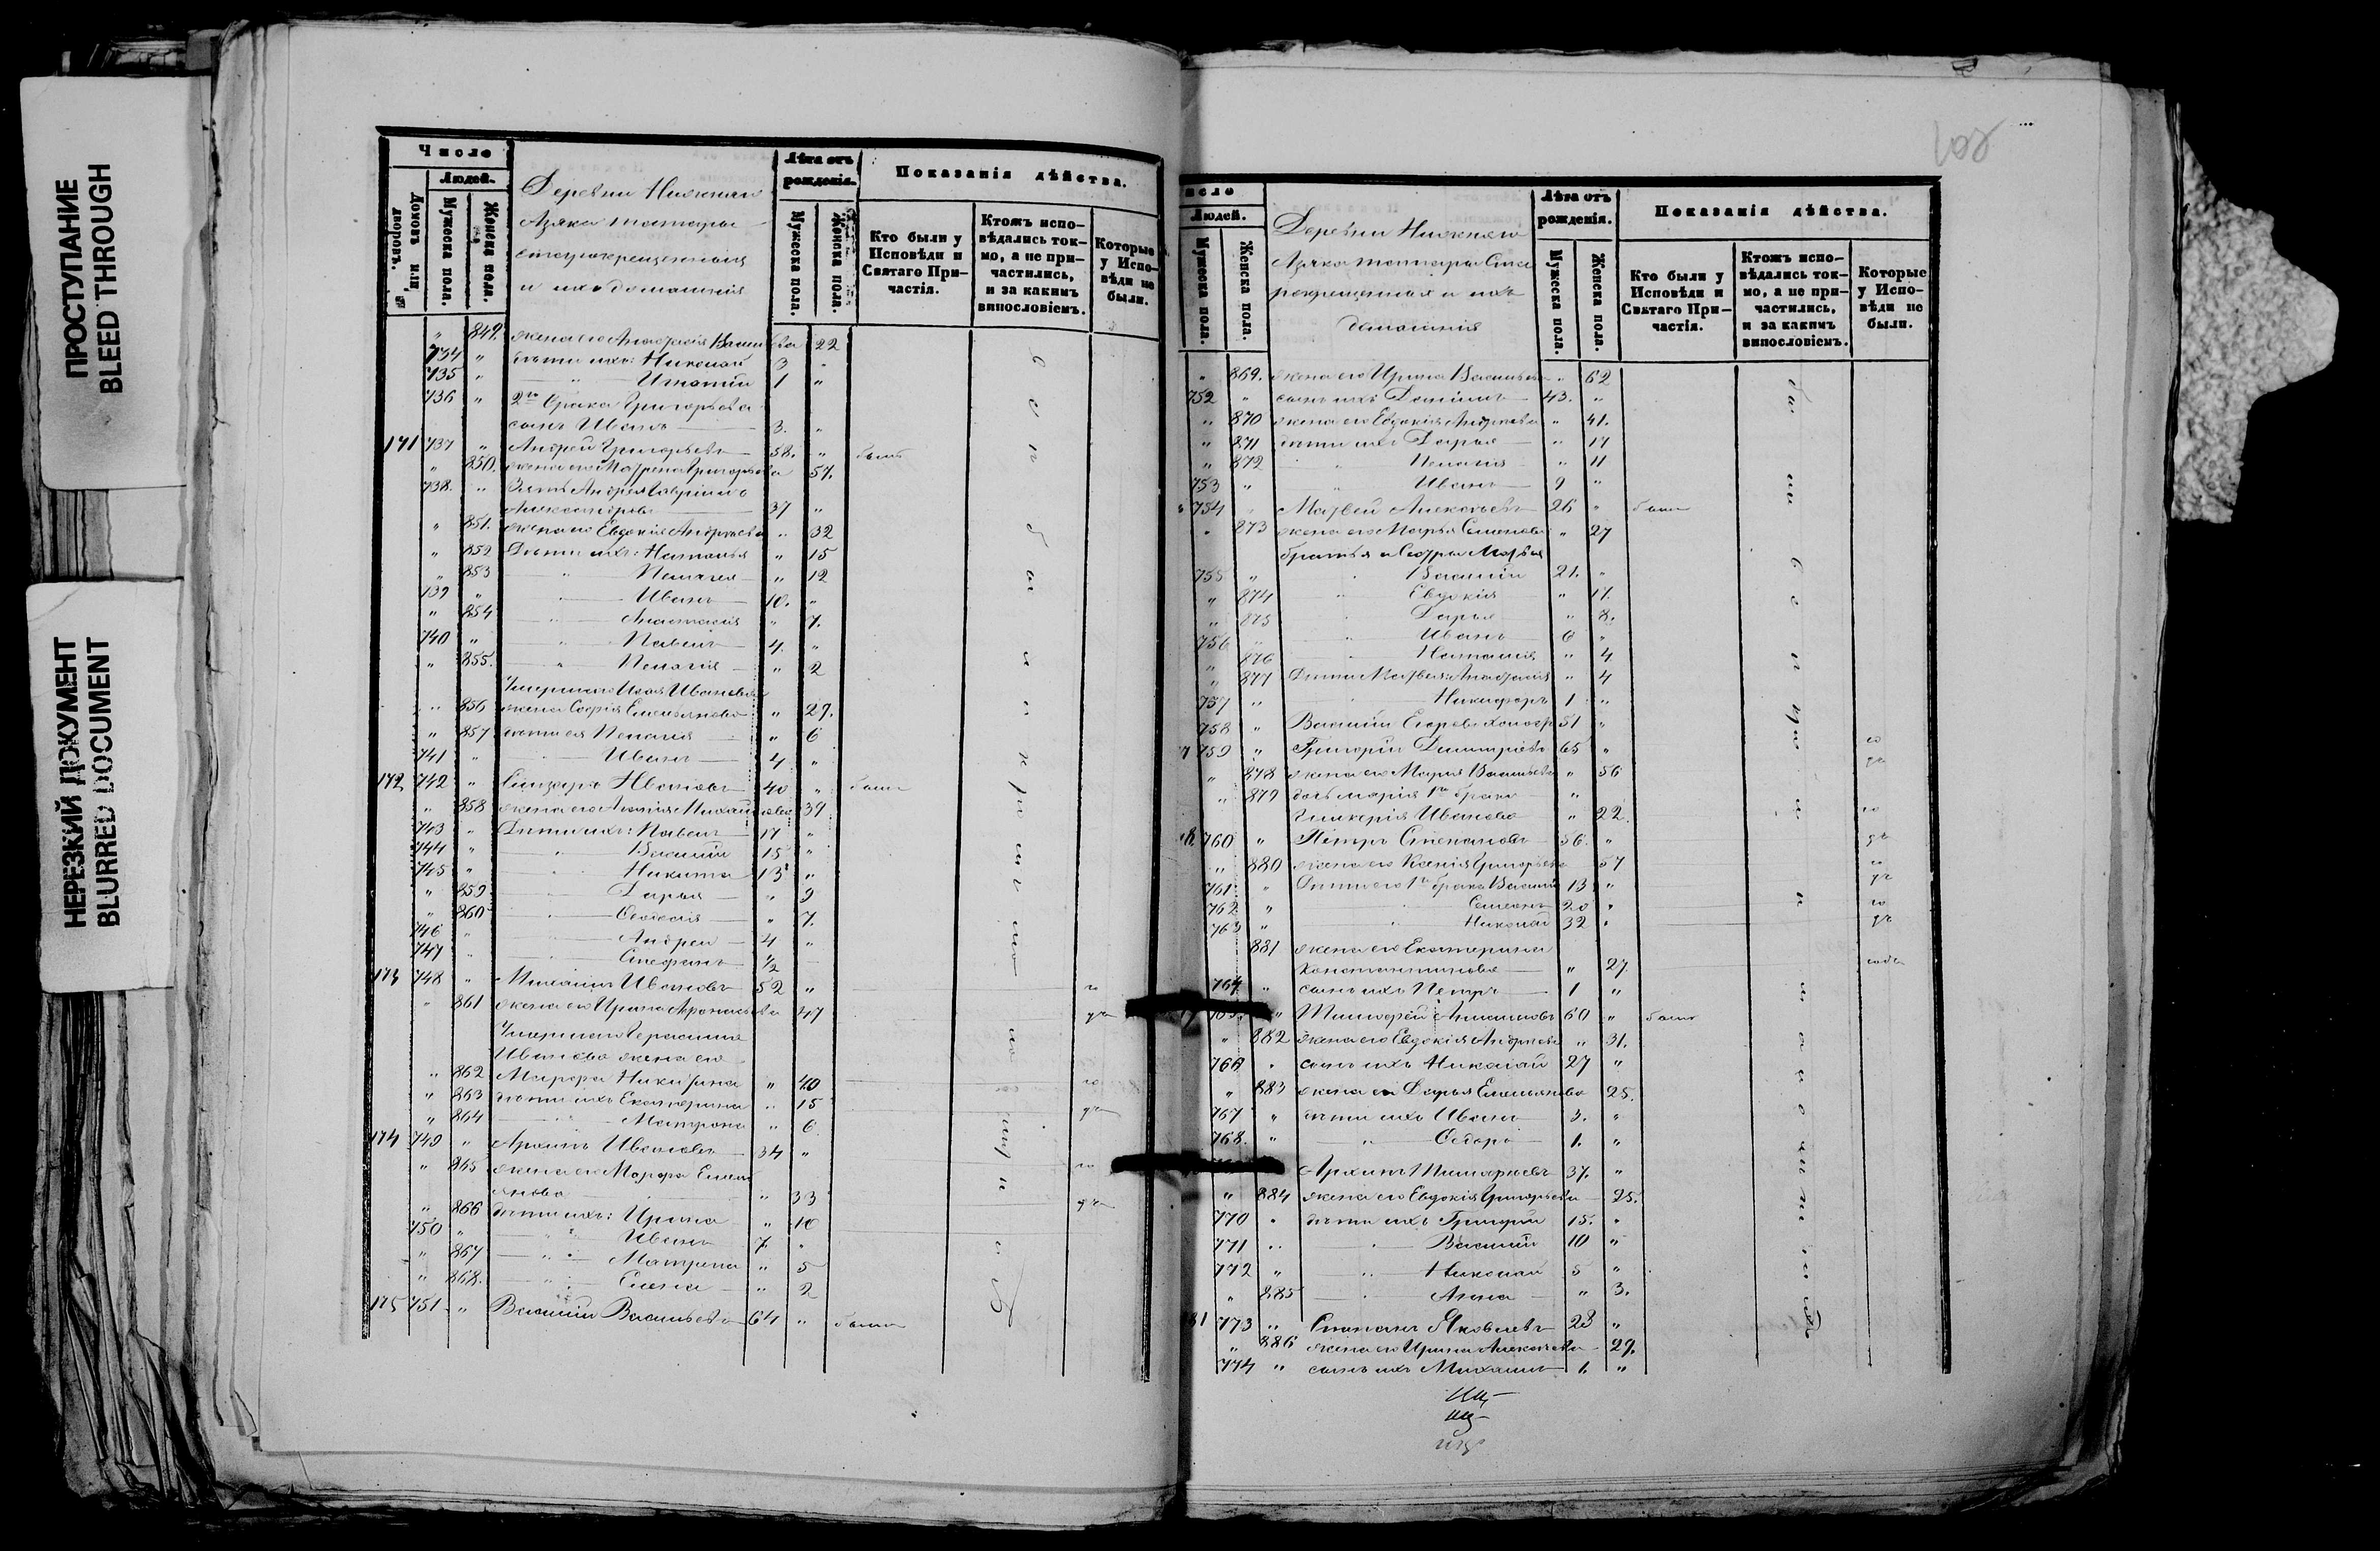 ПРОСТУПАНИЕ
BLEED THROUGH
НЕРЕЗКИЙ ДОКУМЕНТ
BLURRED DOCUMENT
Число
Людей.
Домовъ или дворовъ.
Мужеска пола.
Женска пола.
Деревни Нижняго
Азяка татары
старокрещенныя
и ихъ домашнія
Лѣта отъ рожденія.
Мужеска пола.
Женска пола.
Показанія дѣйства.
Кто были у Исповѣди и Святаго При-частія.
Ктожъ испо-вѣдались ток-мо, а не при-частились, и за какимъ винословіемъ.
Которые у Испо-вѣди не были.
" 849. жена его Анастасія Васильева 22
734 " дѣти ихъ: Николай 3 "
735 " " Игнатій 1 "
736 " 2го брака Григорьева
сынъ Иванъ 3. "
171 737 " Андрей Григорьевъ 58. " были
" 850. жена его Матрена Григорьева 57.
738. " Зять Андрея Гавріилъ
Александровъ 37 "
" 851. жена его Евдокія Андреева " 32
" 852 Дѣти ихъ: Наталья " 15
" 853 " Пелагея " 12
739 " " Иванъ 10. "
" 854 " Анастасія " 7.
740 " " Павелъ 4. "
" 855. " Пелагія " 2
Умершаго Ивановa
" 856 жена Софія Емельянова " 27.
" 857 дѣти ея Пелагія " 6
741 " Иванъ 4 "
172 742 " Ивановъ 40 " были
" 858 жена его Михайлова 39
743 " Дѣти ихъ: Павелъ 17 "
744 " " Василій 15 "
745 " " Никита 13 "
" 859 " Дарья " 9
" 860 " Ѳеодосія " 7.
746 " " Андрей 4 "
747 " " Стефанъ 1/2
173 748 " Михаилъ Ивановъ 52 "
" 861 жена его Ирина 47
Умершаго Герасима
Иванова жена его
" 862 Марфа Никитина " 40
" 863 дѣти ихъ Екатерина " 15
" 864 " Матрона " 6
174 749 " Архипъ Ивановъ 34 "
" 865 жена его Марфа Емель
янова " 33
" 866 дѣти ихъ: Ирина " 10
750 " " Иванъ 7. "
" 867 " Матрена " 5
" 868. " Елена " 2
175 751 " Василій Васильевъ 64 " были
108
исло
Людей.
Мужеска пола.
Женска пола.
Деревни Нижняго
Азяка татары Ста
рокрещенныя и ихъ
домашнія
Лѣта отъ рожденія.
Мужеска пола.
Женска пола.
Показанія дѣйства.
Кто были у Исповѣди и Святаго При-частія.
Ктожъ испо-вѣдались ток-мо, а не при-частились, и за какимъ винословіемъ.
Которые у Испо-вѣди не были.
" 869. жена его Ирина Васильева " 62
752 " сынъ ихъ Даніилъ 43. "
" 870 жена его Евдокія Андреева " 41.
" 871 дѣти ихъ Дарья " 17
" 872 " Пелагія " 11
753 " " Иванъ 9 "
754 " Матвей Алексеевъ 26 " были
" 873 жена его Марья Семенова " 27
братья и Сестры Матвея
755 " " Василій 21. "
" 874 " Евдокія " 17.
" 875 " Дарья " 8.
756 " " Иванъ 6 "
" 876 " Наталія " 4
" 877 Дѣти Матвея: Анастасія " 4
757 " " Никифоръ 1 "
758 " Василій Егоровъ 51 "
759 " Григорій Димитріевъ 65 "
" 878 жена его Марія Васильева " 56
" 879 дочь Марія 1го брака "
Гликерія Иванова " 22.
760 " Петръ Степановъ 56. "
" 880 жена его Ксенія Григорьева 57
761 " Дѣти его 1го брака Василій 13 "
762 " " Семенъ 20 "
763 " " Николай 32 "
881 жена его Екатерина
Константинова " 27.
764 " сынъ ихъ Петръ 1 "
" Тимофей 60 " были
" 882 жена его Евдокія Андреева " 31.
766 " сынъ ихъ Николай 27 "
" 883 жена его Дарья Емельянова 25.
767 " дѣти ихъ Иванъ 3. "
768. " " Ѳедоръ 1. "
Архипъ Тимофеевъ 37. "
" 884 жена его Евдокія Григорьева 25.
770 " дѣти ихъ Григорій 15. "
771 " " Василій 10 "
772 " " Николай 5 "
" 885 " Анна " 3.
773 " Степанъ Яковлевъ 28 "
" 886 жена его Ирина Алексеева 29.
774 " сынъ ихъ Михаилъ 1. "